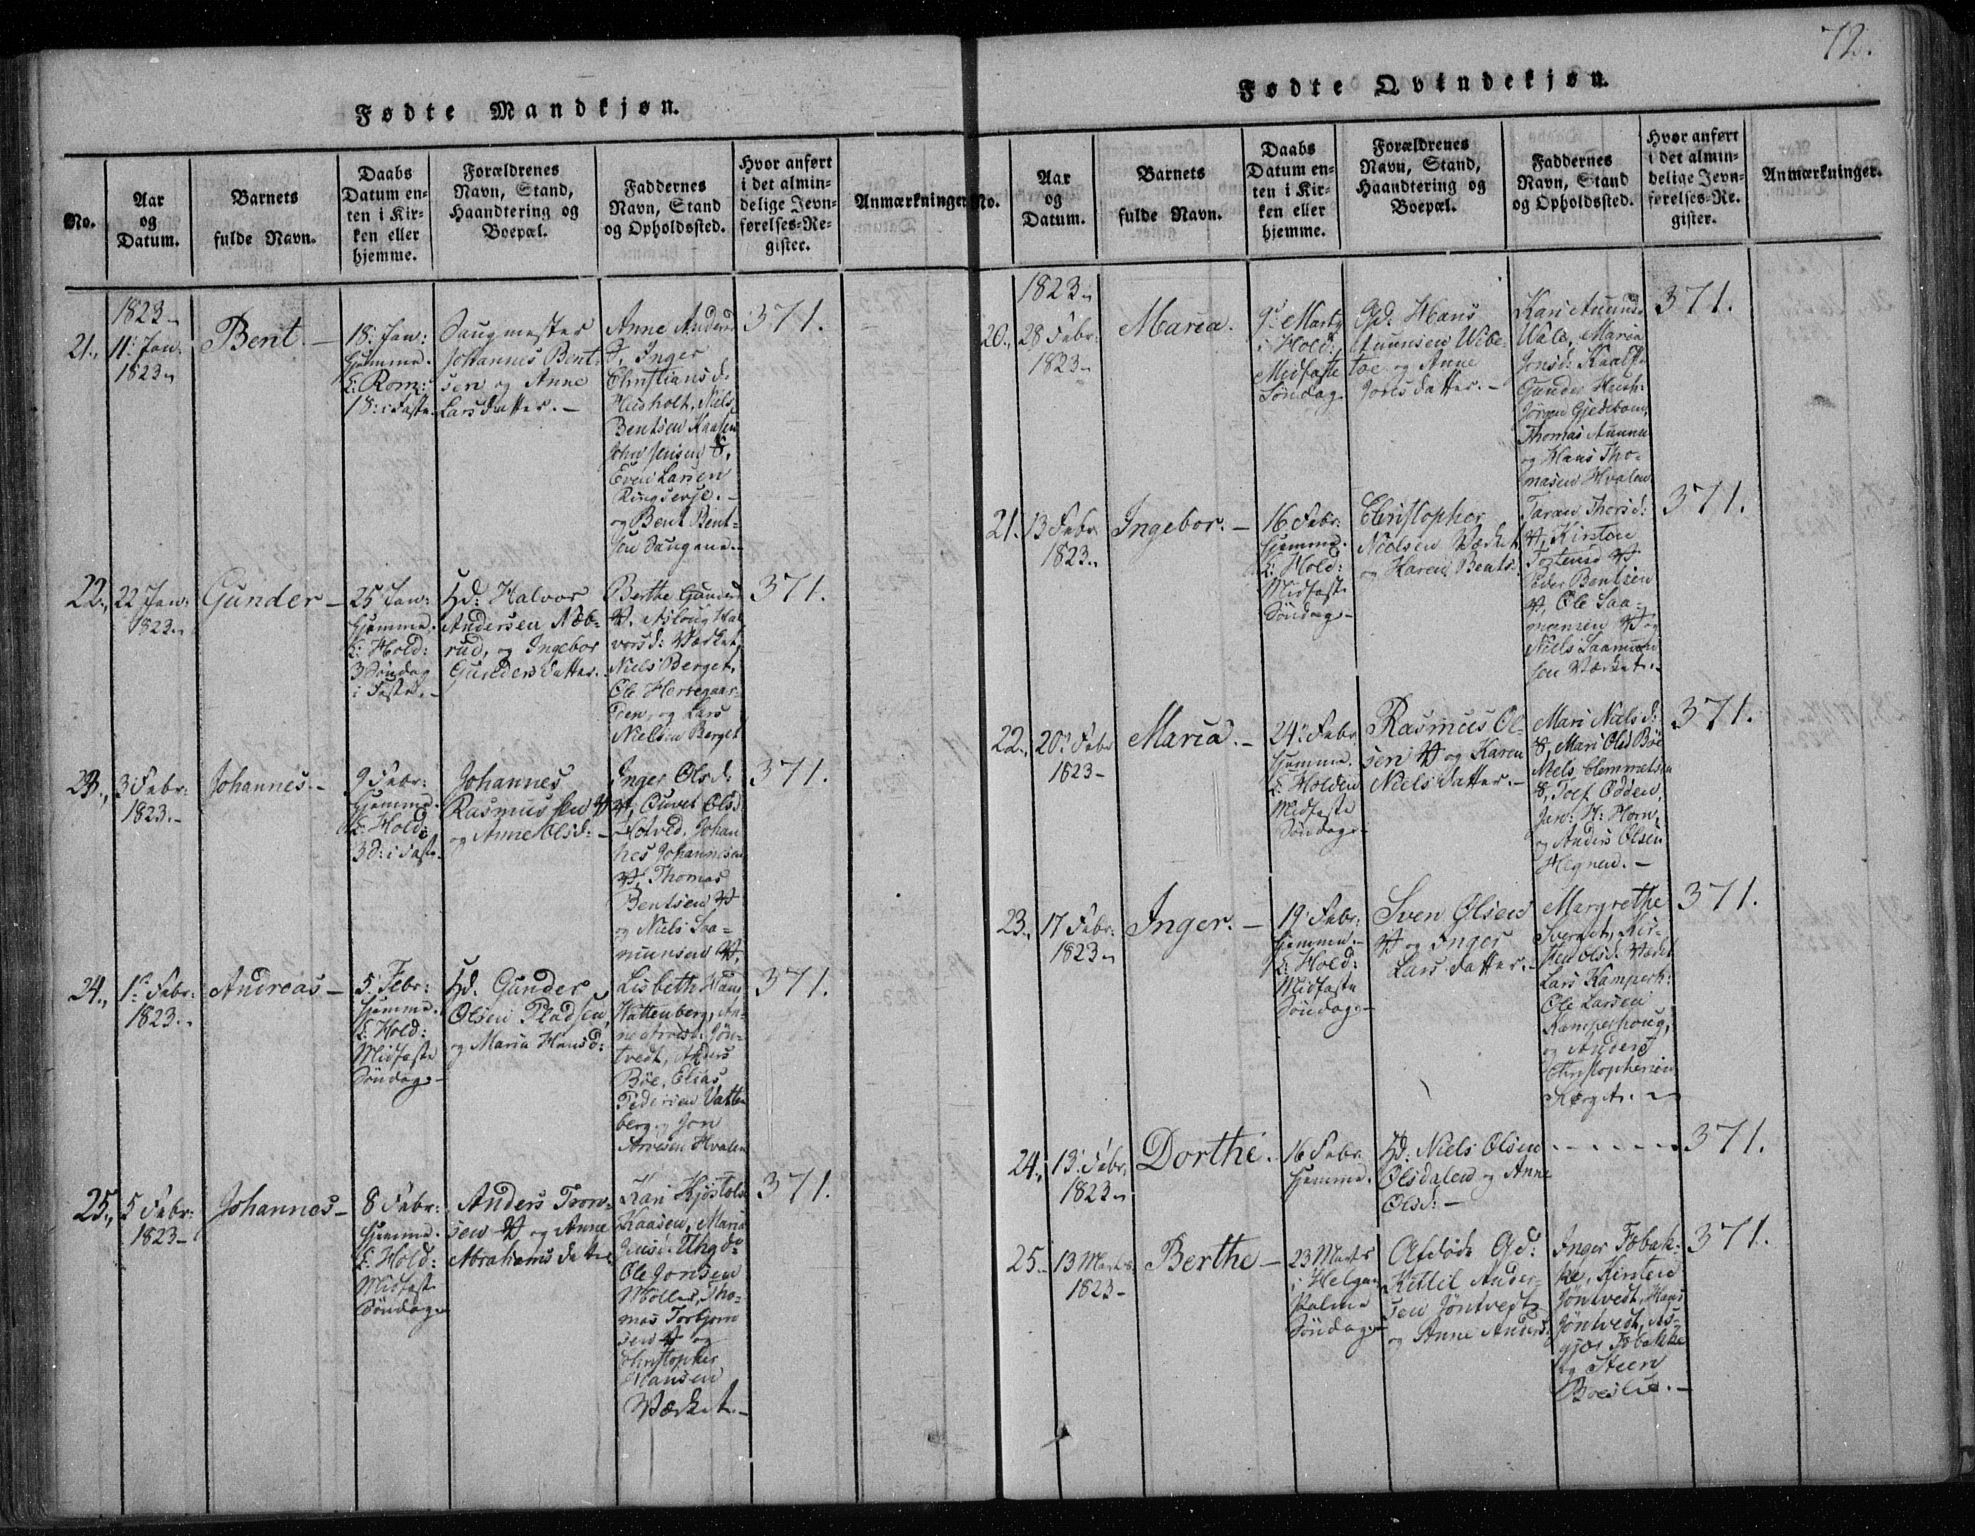 72.
Fødte Mandkjøn.
No.
Aar
og
Datum.
Barnets
fulde Navn.
Daabs
Datum en-
ten i Kir-
ken eller
hjemme.
Forældrenes
Navn, Stand,
Haandtering og
Boepæl.
Faddernes
Navn, Stand
og Opholdssted.
Hvor anført
i det almin-
delige Jevn-
førelses-Re-
gister.
Anmærkninger.
1823
21.
11. Jan:
1823
Bent.
18. Jan:
hjemme.
Rom:
18: i Faste
Saugmester
Johannes Bent-
sen og Anne
Larsdatter.
Anne Anders
Inger
Christiansd:
Husholt, Niels
Bentsen Kaasen
John Jensen
Even Larsen
Ringsevje.
og Bent Bent-
sen Saugene.
371.
22.
22 Jan:
1823
Gunder
25 Jan:
hjemme.
Hold:
3 Søndag
i Faste.
Hd: Halvor
Andersen Næb-
rud, og Ingebor
Gundersdatter.
Berthe Gunders
Asloug Hal-
vorsd: Værket,
Niels Berget,
Ole Herregaar-
den, og Lars
Nielsen Berget
371.
23.
3 Febr:
1823.
Johannes.
9 Febr:
hjemme.
Hold:
3 S: i Faste.
Johannes
Rasmussen
og Anne Olsd:
Inger Olsd:
Olsd
Holtved, Johan
nes Johannesen
Thomas
Bentsen
og Niels Saa-
munsen
371.
24.
1. Febr:
1823.
Andreas
5 Febr:
hjemme.
Hold:
Midfaste
Søndag.
Hd. Gunder
Olsen Pladsen,
og Maria Hansd:
Lisbeth Hans
Vattenberg, An-
ne Arvesd: Jøn-
tvedt, Anders
Bøe, Elias
Pedersen Vatten
berg, Jon
Arvesen Hvalen
371.
25.
5 Febr:
1823
Johannes
8 Febr:
hjemme.
Hold:
Midfaste
Søndag
Anders Tron-
sen og Anne
Abrahamsdatter
Kari Kjøstolsd
Kaasen, Maria
Ole Jonsen
Møller, Tho-
mas Torbjørn
sen og
Christopher
Hansen
Værket.
371.
Fødte Qvindekjøn.
No.
Aar
og
Datum.
Barnets
fulde Navn.
Daabs
Datum en-
ten i Kir-
ken eller
hjemme.
Forældrenes
Navn, Stand,
Haandtering og
Boepæl.
Faddernes
Navn, Stand
og Opholdssted.
Hvor anført
i det almin-
delige Jevn-
førelses-Re-
gister.
Anmærkninger.
1823
20.
28 Febr:
1823
Maria.
9 Marty
i Hold:
Midfaste
Søndag
Gd: Hans
Aunnsen Wibe-
toe og Anne
Jonsdatter.
Kari Aunns
Wale, Maria
Jonsd:
Gunder
Jørgen Gjedebom,
Thomas Aunns
og Hans Tho-
masen Hvalen
371.
21.
13 Febr.
1823.
Ingebor.
16 Febr.
hjemme.
Hold:
Midfaste
Søndag
Christopher
Nielsen Værket
og Karen Bents.
Taran Thorsd:
Kirsten
Peder Bentsen
Ole Saa-
monsen og
Niels Saamun
sen Værket.
371.
22.
20 Febr
1823
Maria.
24 Febr
hjemme.
Holden
Midfaste
Søndag
Rasmus Ol-
sen og Karen
Nielsdatter.
Mari Nielsd:
Mari Olsd Bøe
Niels Clemmetsen
Joef Odden,
Jan: H: Horn,
og Anders Olsen
Hegnen.
371.
23.
17 Febr.
1823
Inger.
19 Febr:
hjemme.
Hold:
Midfaste
Søndag
Sven Olsen
og Inger
Larsdatter.
Margrethe
Kir-
sten Olsd: Værket
Lars Kamperh:
Ole Larsen
Kamperhoug,
og Anders
Christophersen
371.
24.
13 Febr.
1823
Dorthe.
16 Febr.
hjemme.
Hd: Niels Olsen
Olsdalen og Anne
Olsd:
371.
25.
13 Marts
1823
Berthe
23 Marts
i Helgen
Palme
Søndag
Afdøde Gd:
Kittil Ander-
sen Jøntvedt
og Anne Anders.
Inger Tobak-
ke, Kirsten
Jøntvedt, Hans
Jøntvedt, As-
gjer Tobakke
og Steen
371.